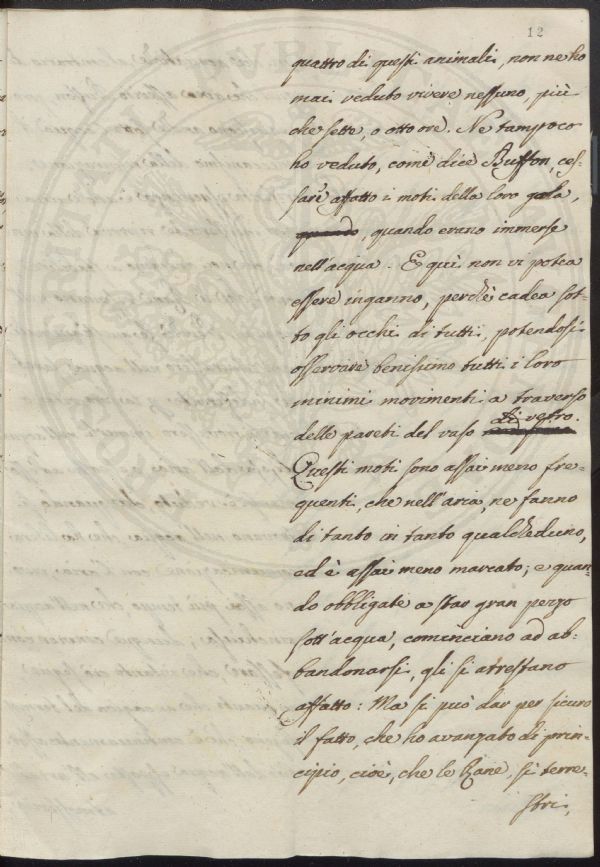 12
quattro di questi animali, non ne ho
mai veduto vivere nessuno, più
che sette, o otto ore. Ne tampoco
ho veduto, come dice Buffon, ces-
sare affatto i moti della loro gola,
quando, quando erano immerse
nell'acqua. E quì non vi potea
essere inganno, perchè cadea sot-
to gli occhi di tutti, potendosi
osservare benissimo tutti i loro
minimi movimenti a traverso
delle pareti del vaso di vetro.
Questi moti sono assai meno fre-
quenti, che nell'aria, ne fanno
di tanto in tanto qualcheduno,
ed è assai meno marcato; e quan-
do obbligate a star gran pezzo
sott'acqua, cominciano ad ab-
bandonarsi, gli si arrestano
affatto: Ma si può dar per sicuro
il fatto, che ho avanzato di prin-
cipio, cioè, che le Rane, sì terre-
stri,